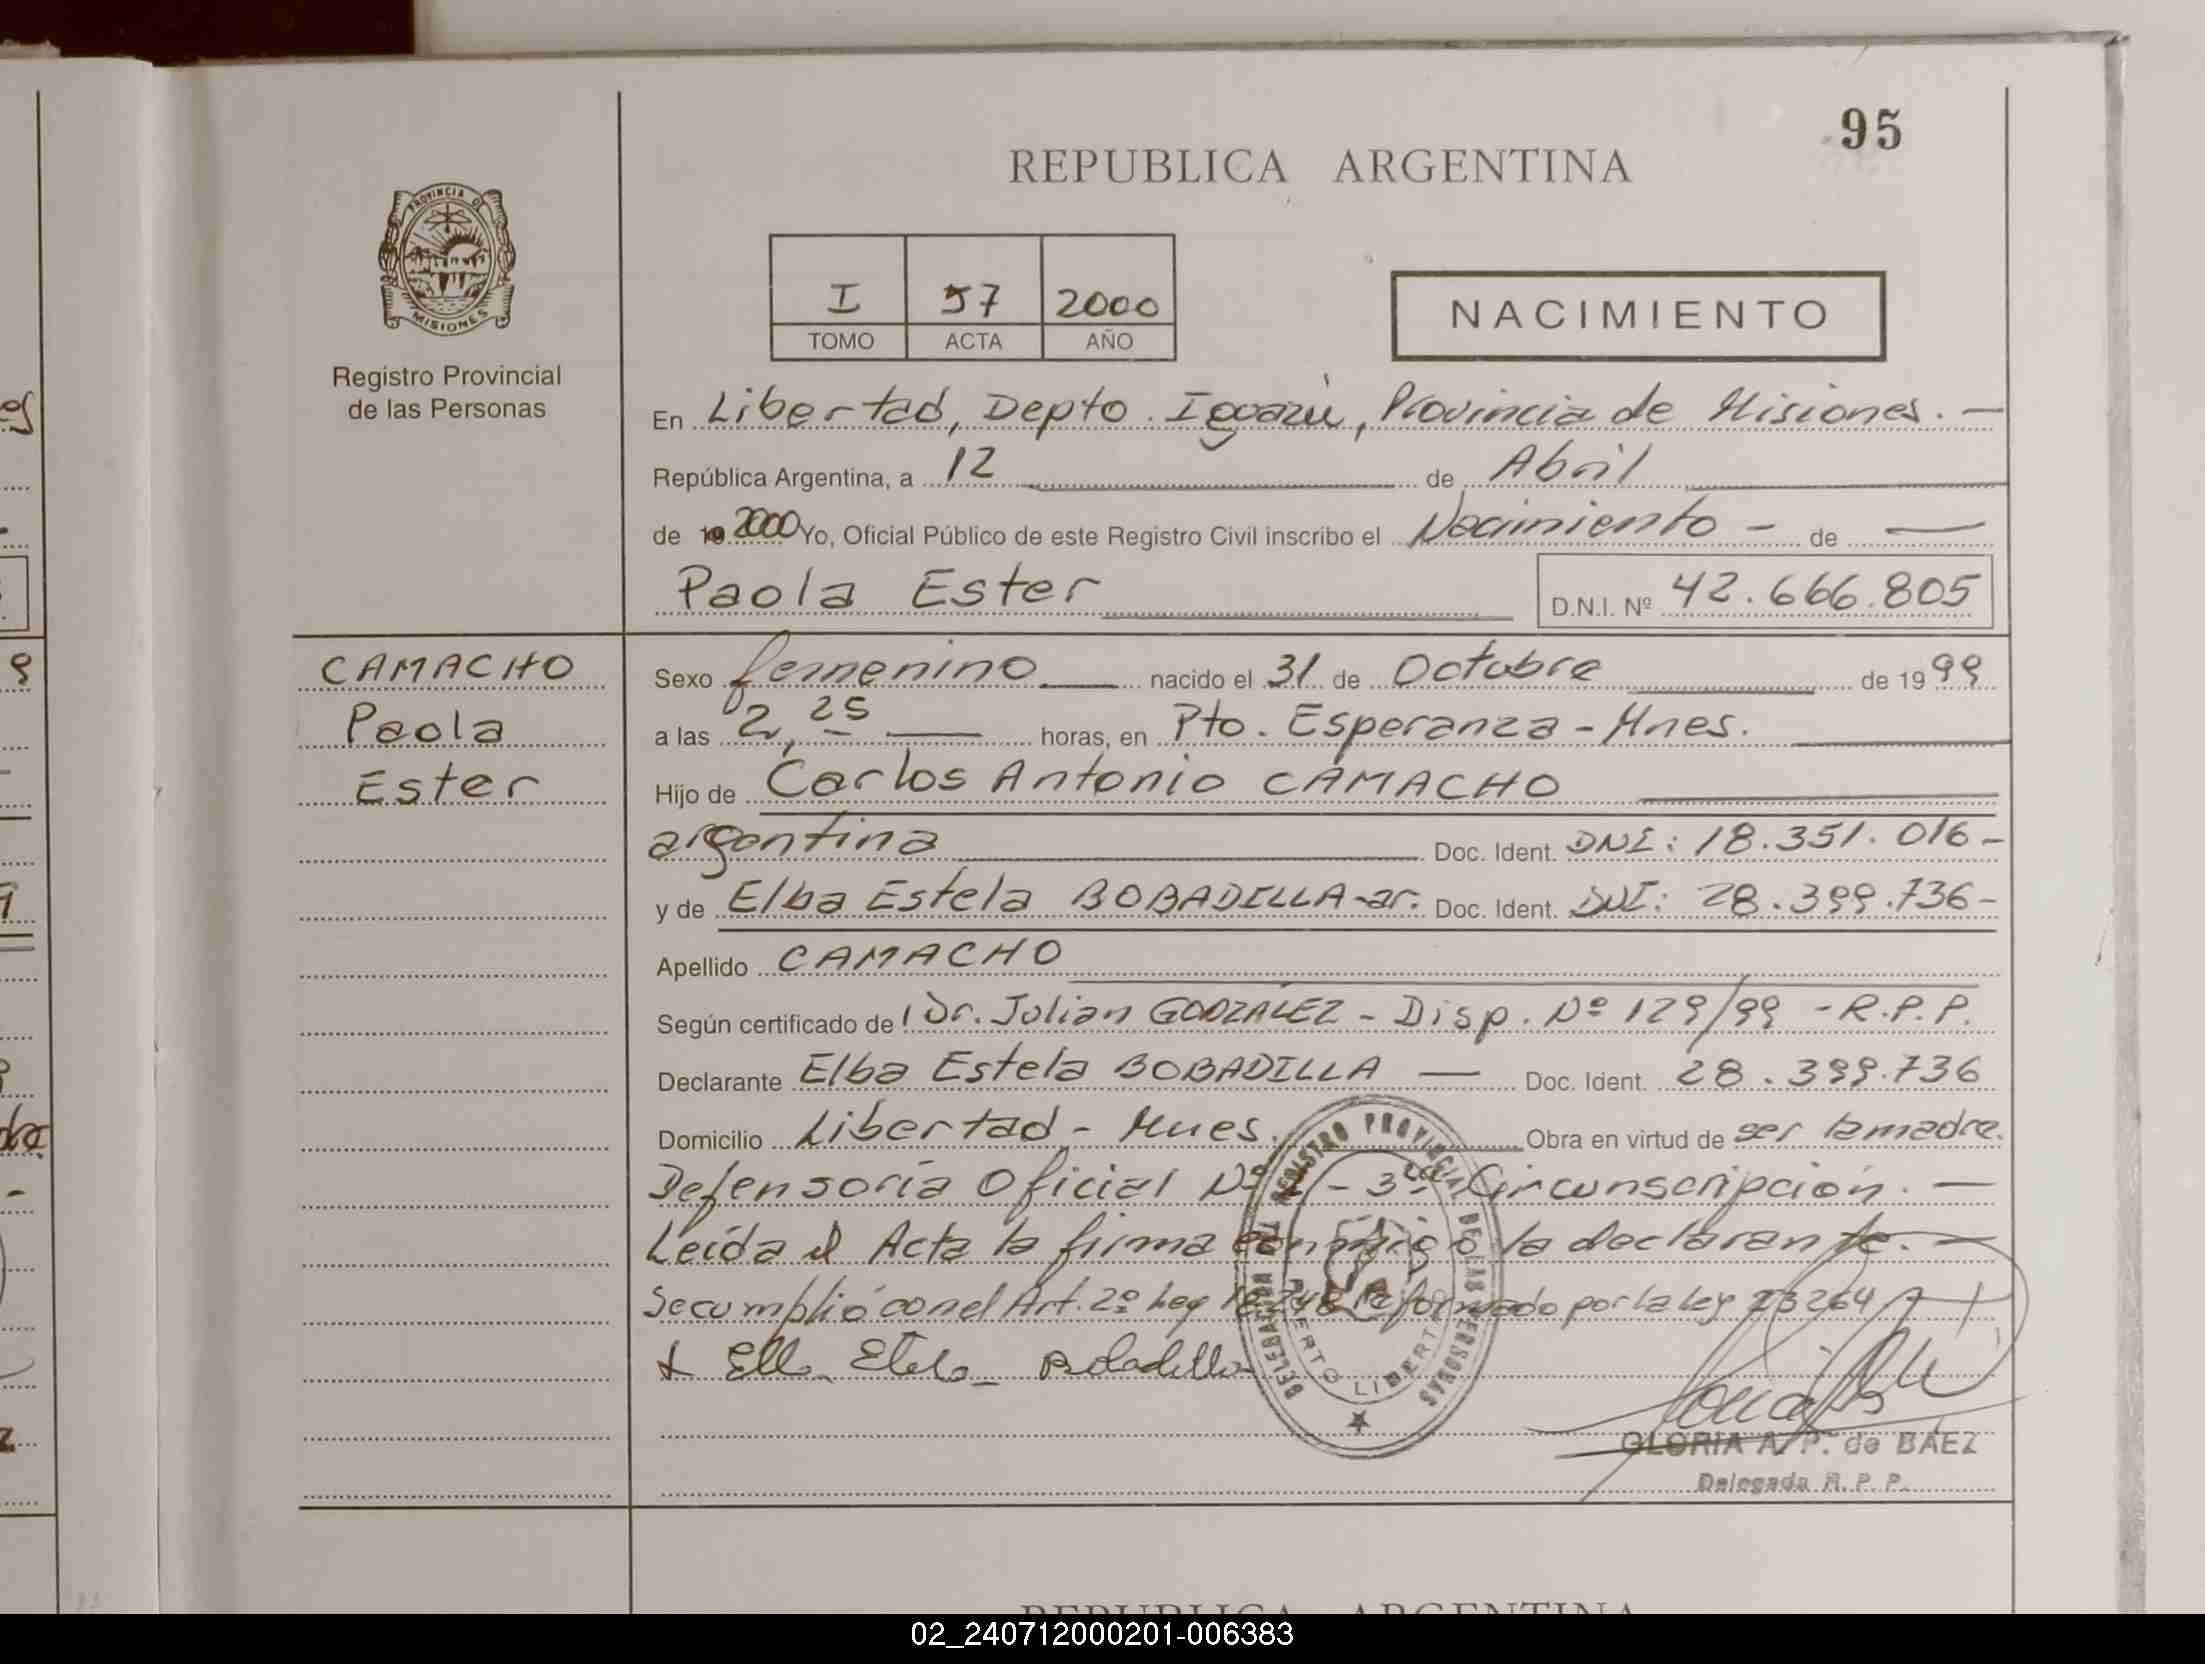 95
REPUBLICA ARGENTINA
PROVINCIA DE
MISIONES
Registro Provincial
de las Personas
I 57 2000
TOMO ACTA AÑO
NACIMIENTO
En Libertad, Depto. Iguazú, Provincia de Misiones. —
República Argentina, a 12 de Abril
de 19 2000 Yo, Oficial Público de este Registro Civil inscribo el Nacimiento - de —
Paola Ester D.N.I. Nº 42.666.805
CAMACHO
Paola
Ester
Sexo femenino nacido el 31 de Octubre de 1999
a las 2,25 horas, en Pto. Esperanza - Mnes.
Hijo de Carlos Antonio CAMACHO
argentina Doc. Ident. DNI: 18.351.016-
y de Elba Estela BOBADILLA-ar. Doc. Ident. DNI: 28.399.736-
Apellido CAMACHO
Según certificado de Dr. Julian GONZALEZ - Disp. Nº 129/99 - R.P.P.
Declarante Elba Estela BOBADILLA — Doc. Ident. 28.399.736
Domicilio Libertad - Mnes. Obra en virtud de ser la madre.
Defensoría Oficial Nº - 3ra Circunscripción. —
Leída el Acta la firma conmigo la declarante. —
Se cumplió con el Art. 2º Ley 18.248 reformado por la Ley 23264
Bobadilla
DELEGACION REGISTRO PROVINCIAL DE LAS PERSONAS
PUERTO LIBERTAD
GLORIA A. P. de BAEZ
Delegada R. P. P.
REPUBLICA ARGENTINA
02_240712000201-006383